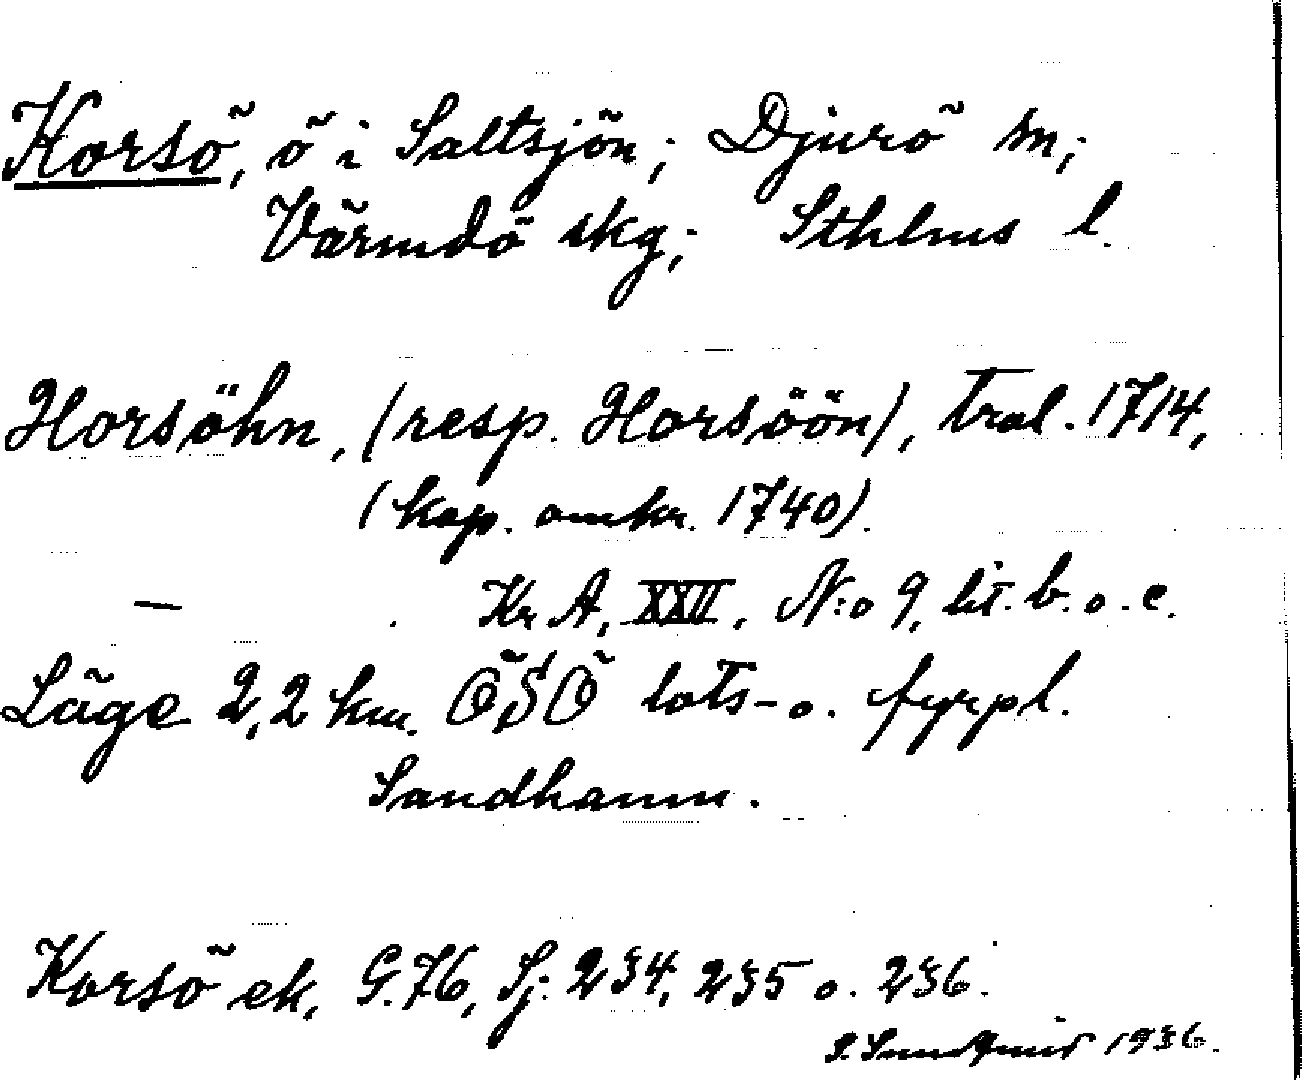 Korsö, ö i Saltsjön; Djurö sn;
Värmdö skg; Sthlms l.
Horsöhn, (resp. Horsöön), Tral. 1714,
(kop. omkr. 1740).
— Kr A, XXII, N:o 9, lit. b. o. c.
Läge 2,2 km. ÖSÖ lots- o. fyrpl.
Sandhamn.
Korsö ek, G. 76, Sj. 234, 235 o. 236.
S. Sundqvist 1936.